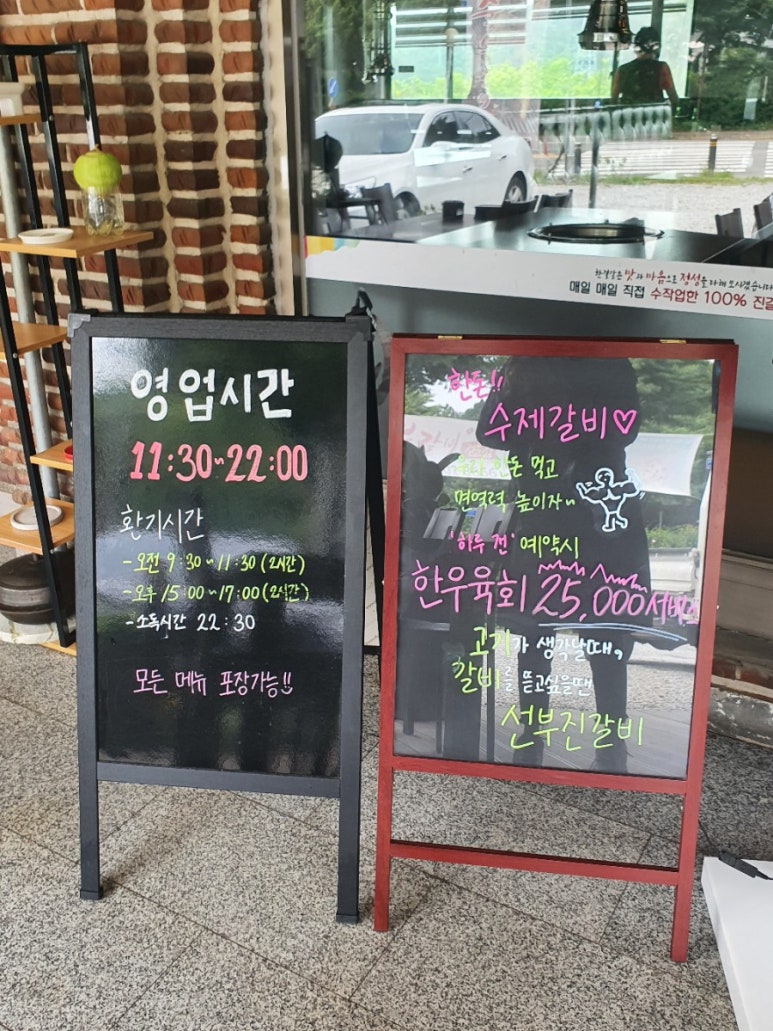 영업시간
11:30~22:00
환기시간
-오전 9:30~11:30 (2시간)
-오후 15:00~17:00 (2시간)
-소독시간 22:30
모든 메뉴 포장가능!!
한돈!!
수제갈비♡
한돈 먹고
면역력 높이자~
'하루 전' 예약시
한우육회 25,000서비스
고기가 생각날때,
갈비를 뜯고싶을땐
선부진갈비
한결같은 맛과 마음으로 정성을 다해 모시겠습니다
매일 매일 직접 수작업한 100% 진갈